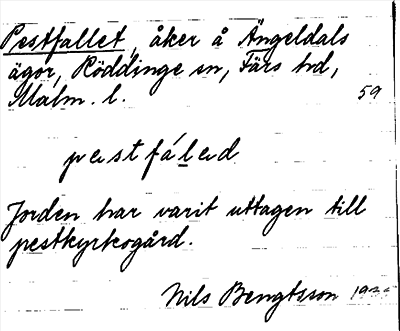 Pestfallet, åker å Ängeldals
ägor, Röddinge sn, Färs hd,
Malm. l. 59
pestfáled
Jorden har varit uttagen till
pestkyrkogård.
Nils Bengtsson